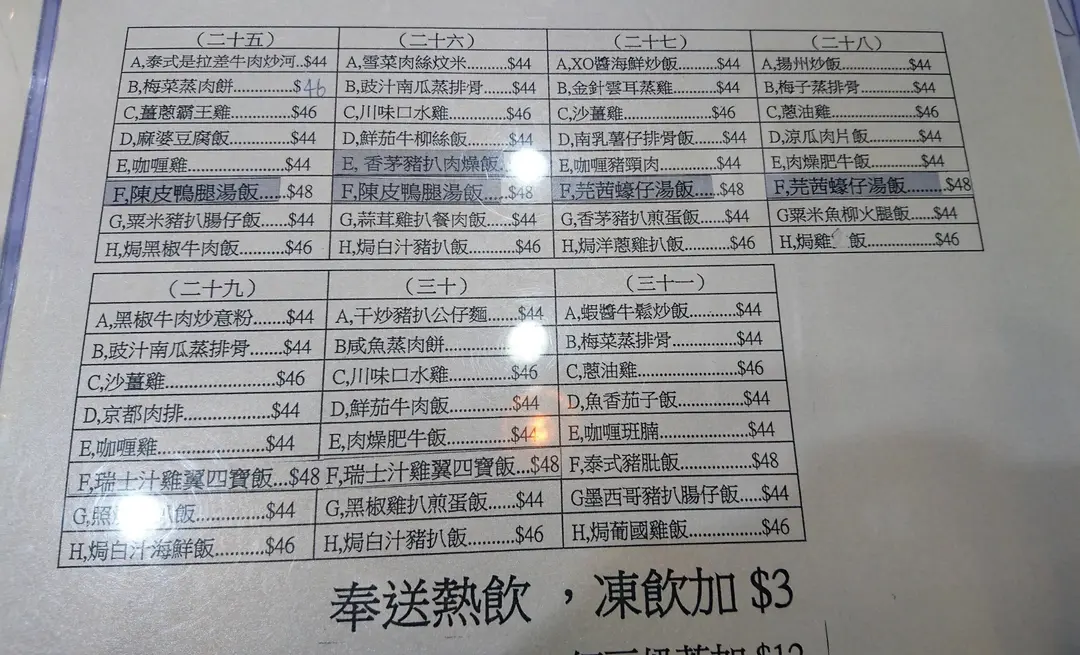 （二十五）
A,泰式是拉差牛肉炒河..$44
B,梅菜蒸肉餅...............$46
C,薑蔥霸王雞..........$46
D,麻婆豆腐飯..........$44
E,咖喱雞................$44
F,陳皮鴨腿湯飯....$48
G,粟米豬扒腸仔飯....$44
H,焗黑椒牛肉飯........$46
（二十六）
A,雪菜肉絲炆米........$44
B,豉汁南瓜蒸排骨....$44
C,川味口水雞...........$46
D,鮮茄牛柳絲飯.......$44
E, 香茅豬扒肉燥飯
F,陳皮鴨腿湯飯.....$48
G,蒜茸雞扒餐肉飯.....$44
H,焗白汁豬扒飯.........$46
（二十七）
A,XO醬海鮮炒飯........$44
B,金針雲耳蒸雞........$44
C,沙薑雞................$46
D,南乳薯仔排骨飯.....$44
E,咖喱豬頸肉...........$44
F,芫茜蠔仔湯飯.....$48
G,香茅豬扒煎蛋飯....$44
H,焗洋蔥雞扒飯........$46
（二十八）
A,揚州炒飯............$44
B,梅子蒸排骨..........$44
C,蔥油雞...............$46
D,涼瓜肉片飯..........$44
E,肉燥肥牛飯.........$44
F,芫茜蠔仔湯飯.......$48
G粟米魚柳火腿飯.....$44
H,焗雞 飯.............$46
（二十九）
A,黑椒牛肉炒意粉.......$44
B,豉汁南瓜蒸排骨.......$44
C,沙薑雞....................$46
D,京都肉排.................$44
E,咖喱雞...................$44
F,瑞士汁雞翼四寶飯...$48
G,照 扒飯...............$44
H,焗白汁海鮮飯.........$46
（三十）
A,干炒豬扒公仔麵......$44
B咸魚蒸肉餅..............$44
C,川味口水雞............$46
D,鮮茄牛肉飯............$44
E,肉燥肥牛飯............$44
F,瑞士汁雞翼四寶飯...$48
G,黑椒雞扒煎蛋飯......$44
H,焗白汁豬扒飯.........$46
（三十一）
A,蝦醬牛鬆炒飯..........$44
B,梅菜蒸排骨.............$44
C,蔥油雞..................$46
D,魚香茄子飯.............$44
E,咖喱班腩...............$44
F,泰式豬肶飯.............$48
G墨西哥豬扒腸仔飯.....$44
H,焗葡國雞飯.............$46
奉送熱飲，凍飲加 $3